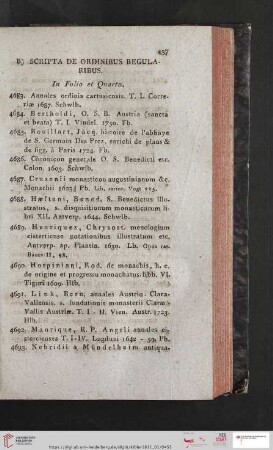 457
B) SCRIPTA DE ORDINIBUS REGULA-
RIBUS.
In Folio et Quarto.
4683. Annales ordinis cartusiensis. T. I. Corre-
riæ 1687. Schwlb.
4684. Bertholdi, O. S. B. Austria (sancta
et beata) T. I. Vindel. 1750. Fb.
4685. Bouillart, Jacq. histoire de l'abbaye
de S. Germain Des Prez, enrichi de plans &
de fig. à Paris 1724. Fb.
4686. Coronicon generale O. S. Benedicti etc.
Colon. 1603. Schwlb.
4687. Crusenii monasticon augustinianum &c.
Monachii 1623 Pb. Lib. rarior. Vogt
4688. Hæfteni, Bened. S. Benedictus illu-
stratus, s. disquisitionum monasticarum li-
bri XII. Antverp. 1644. Schwlb.
4689. Henriquez, Chrysost. menologium
cisterciense notationibus illustratum etc.
Antverp. ap. Plantin. 1630. Lb. Opus
II, 98.
4690. Hospiniani, Rod. de monachis, h. e.
de origine et progressu monachatus libb. VI.
Tiguri 1609. Hlb.
4691. Link, Bern. annales Austrio-Clara-
Vallensis, s. fundationis monasterii Claræ-
Vallis Austriæ. T. I-II. Vien. Austr. 1723.
Hlb.
4692. Manrique, R. P. Angeli annales ci-
sterciensés T. I-IV. Lugduni 1642 - 59. Pb.
4693. Nebridii a Mündelheim antiqua-
https://digi.ub.uni-heidelberg.de/diglit/
UNIVERSITÄTS-
BIBLIOTHEK
HEIDELBERG